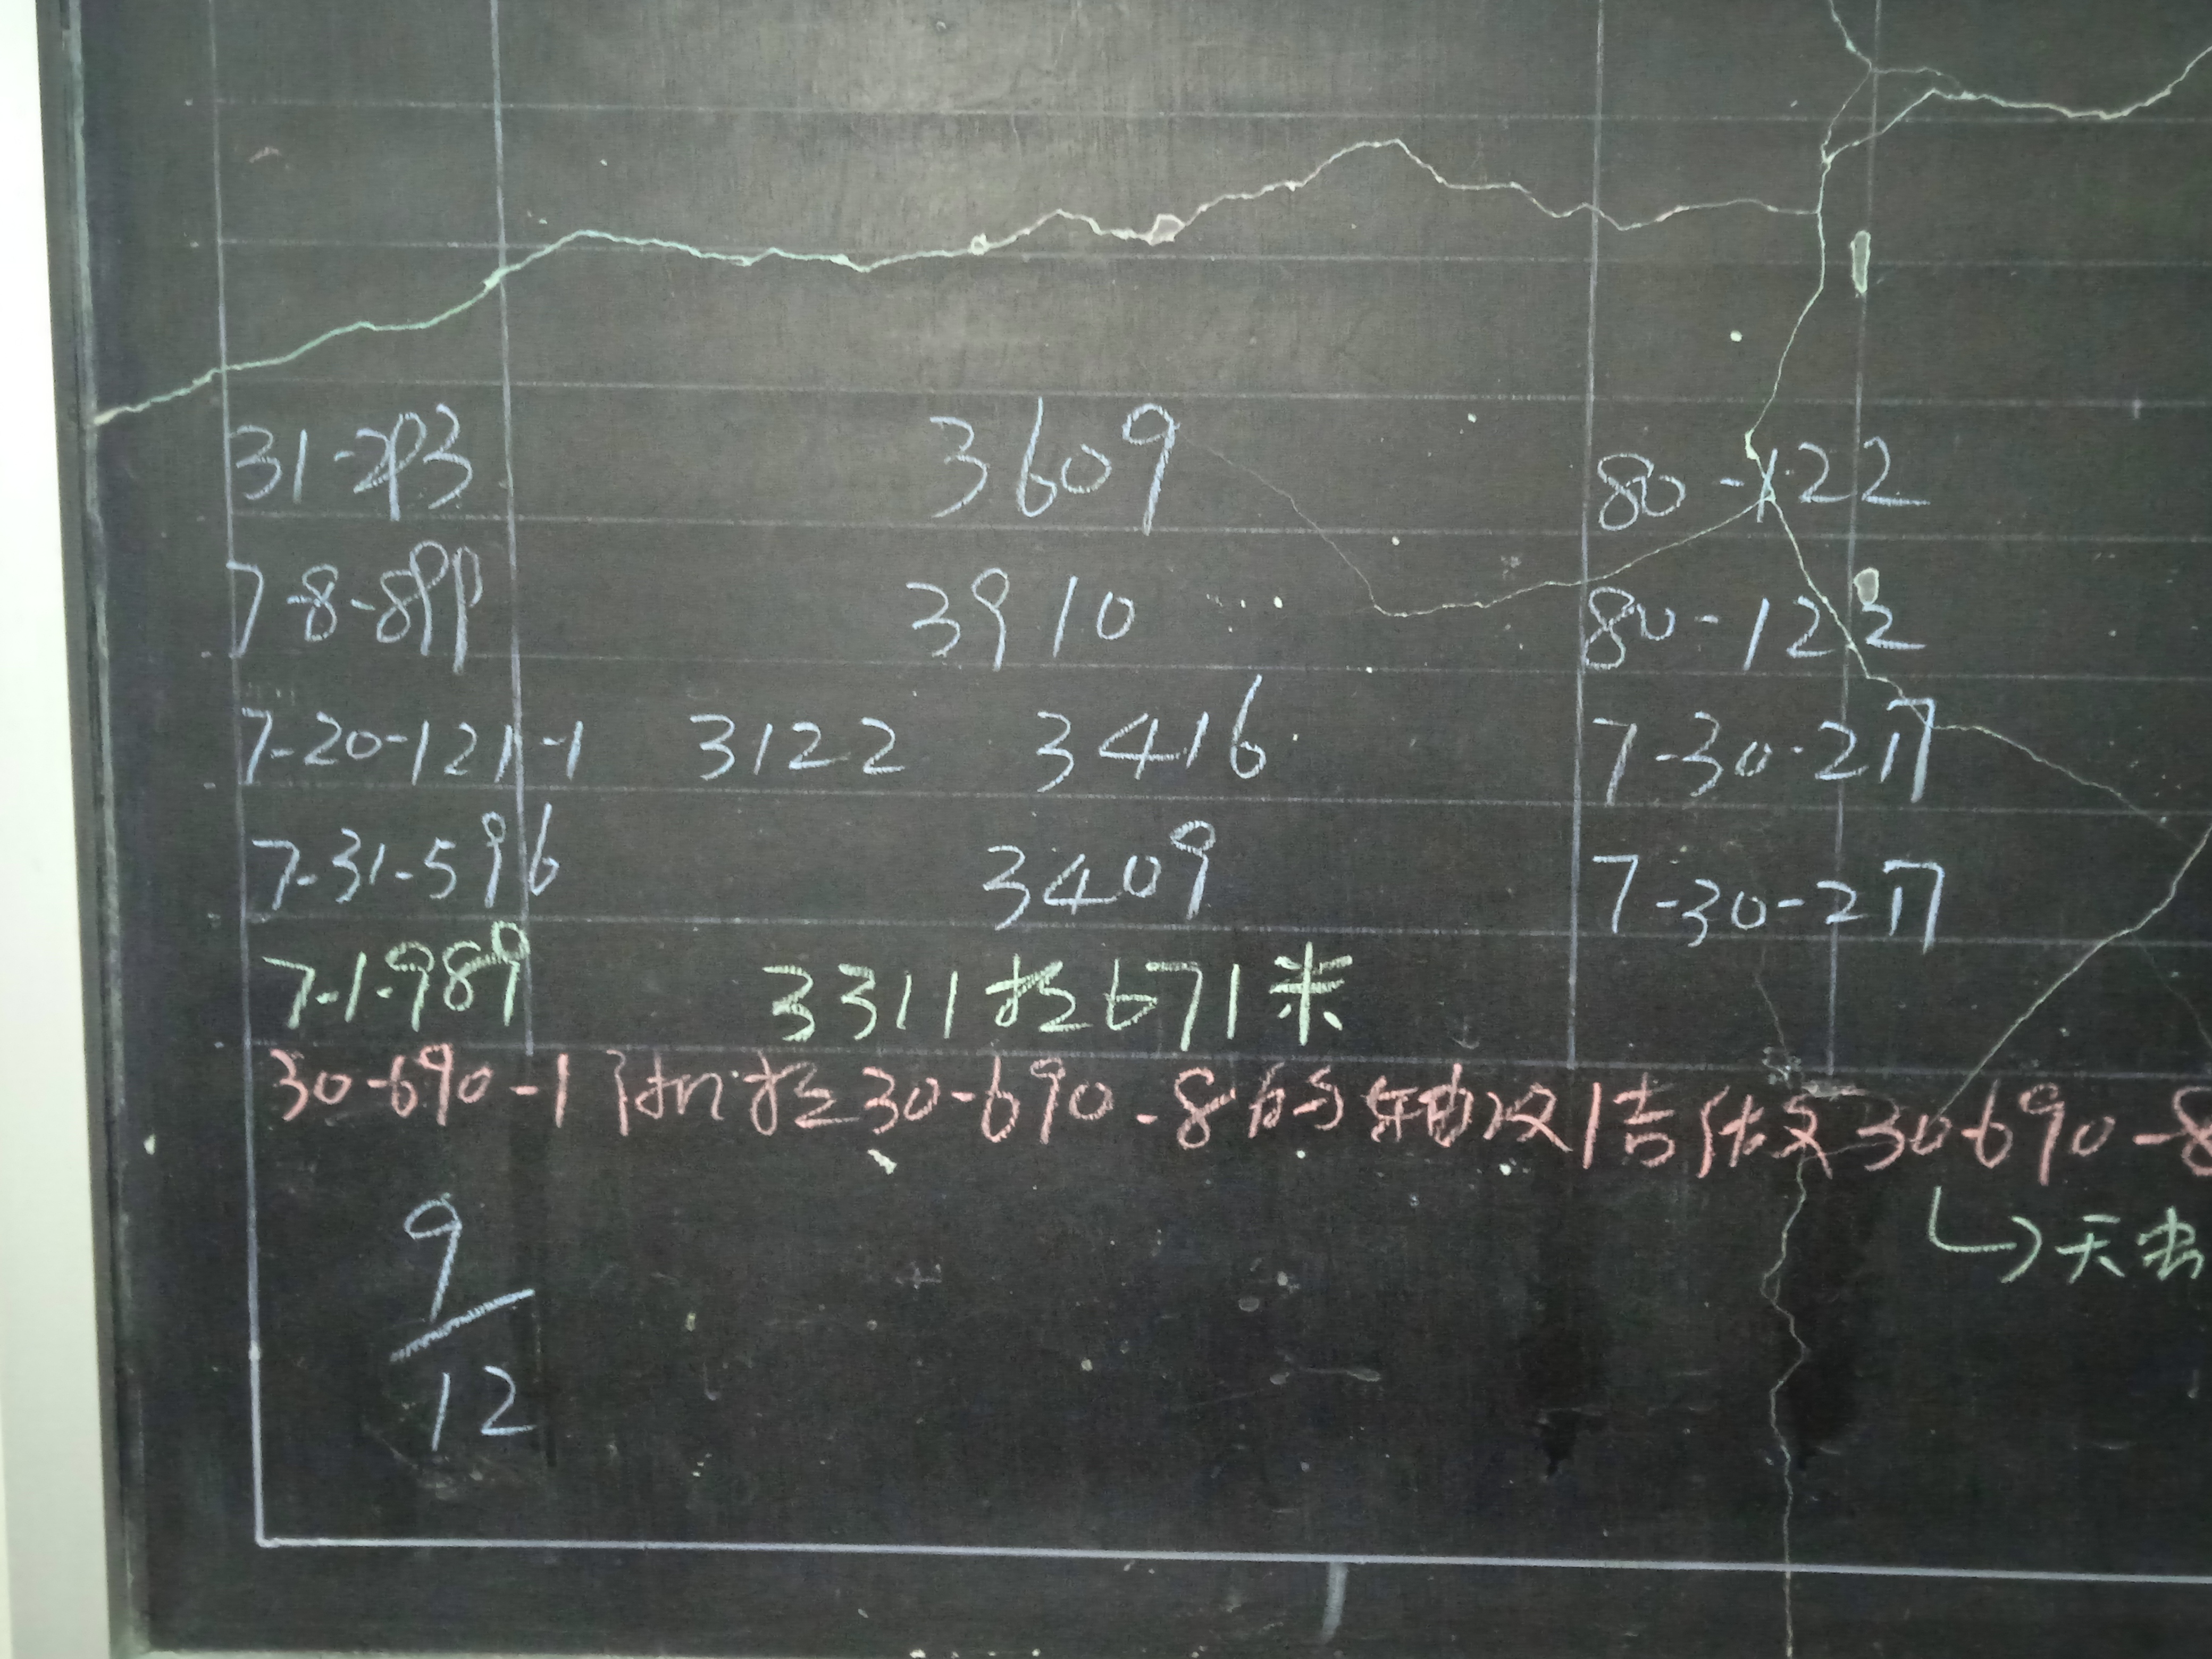 31-293 3609 80-122
7-8-899 3910 80-122
7-20-121-1 3122 3416 7-30-217
7-31-596 3409 7-30-217
7-1-989 3311 挖671米
30-690-1 30-690-8的 30-690-8
天
9/12